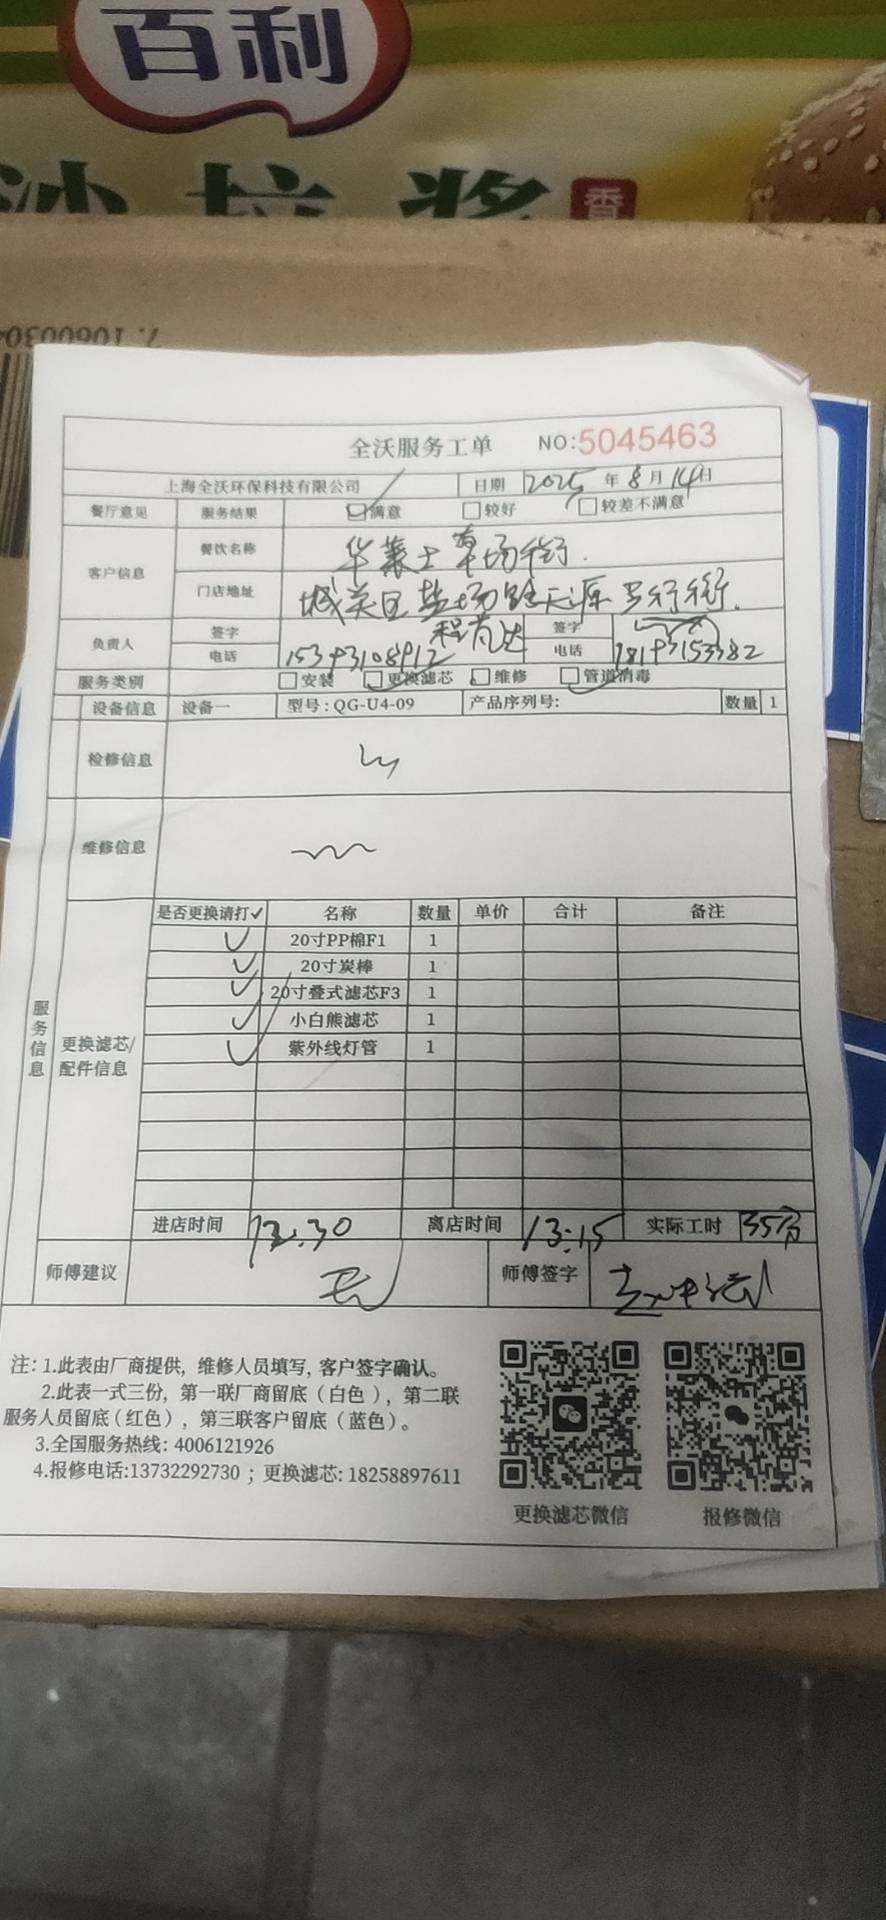 百利
沙拉酱
香
7. 1060030
全沃服务工单 NO:5045463
上海全沃环保科技有限公司 日期 2025 年 8 月 14 日
餐厅意见 服务结果 满意 较好 较差不满意
客户信息 餐饮名称 华莱士草场街.
门店地址 城关区盐场路天源步行街.
负责人 签字 签字
电话 15393108912 电话 18193153382
服务类别 安装 更换滤芯 维修 管道消毒
设备信息 设备一 型号:QG-U4-09 产品序列号: 数量 1
检修信息
维修信息
服务信息
更换滤芯/配件信息
是否更换请打✓ 名称 数量 单价 合计 备注
✓ 20寸PP棉F1 1
✓ 20寸炭棒 1
✓ 20寸叠式滤芯F3 1
✓ 小白熊滤芯 1
✓ 紫外线灯管 1
进店时间 12:30 离店时间 13:15 实际工时 35分
师傅建议 无 师傅签字
注: 1.此表由厂商提供, 维修人员填写, 客户签字确认。
2.此表一式三份, 第一联厂商留底(白色), 第二联
服务人员留底(红色), 第三联客户留底(蓝色)。
3.全国服务热线: 4006121926
4.报修电话:13732292730 ; 更换滤芯: 18258897611
更换滤芯微信 报修微信